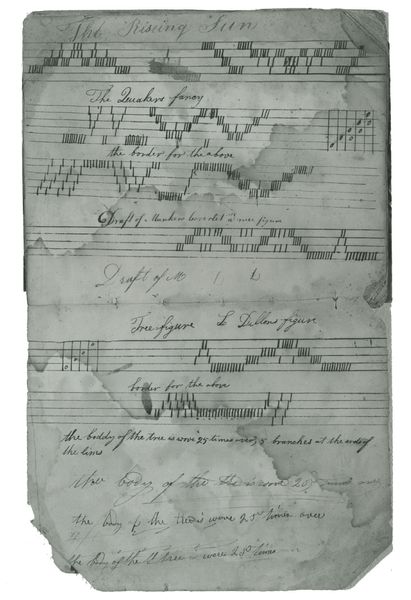 The Rising Sun
The Quakers fancy
the border for the above
Draft of figure
Draft of M
Tree figure L Dullens figure
border for the above
the boddy of the tree is wove 25 times over 5 branches at the ends of
the lims
the body of the tree is wove 25 times over
the body of the tree is wove 25 times over
the body of the tree is wove 25 times